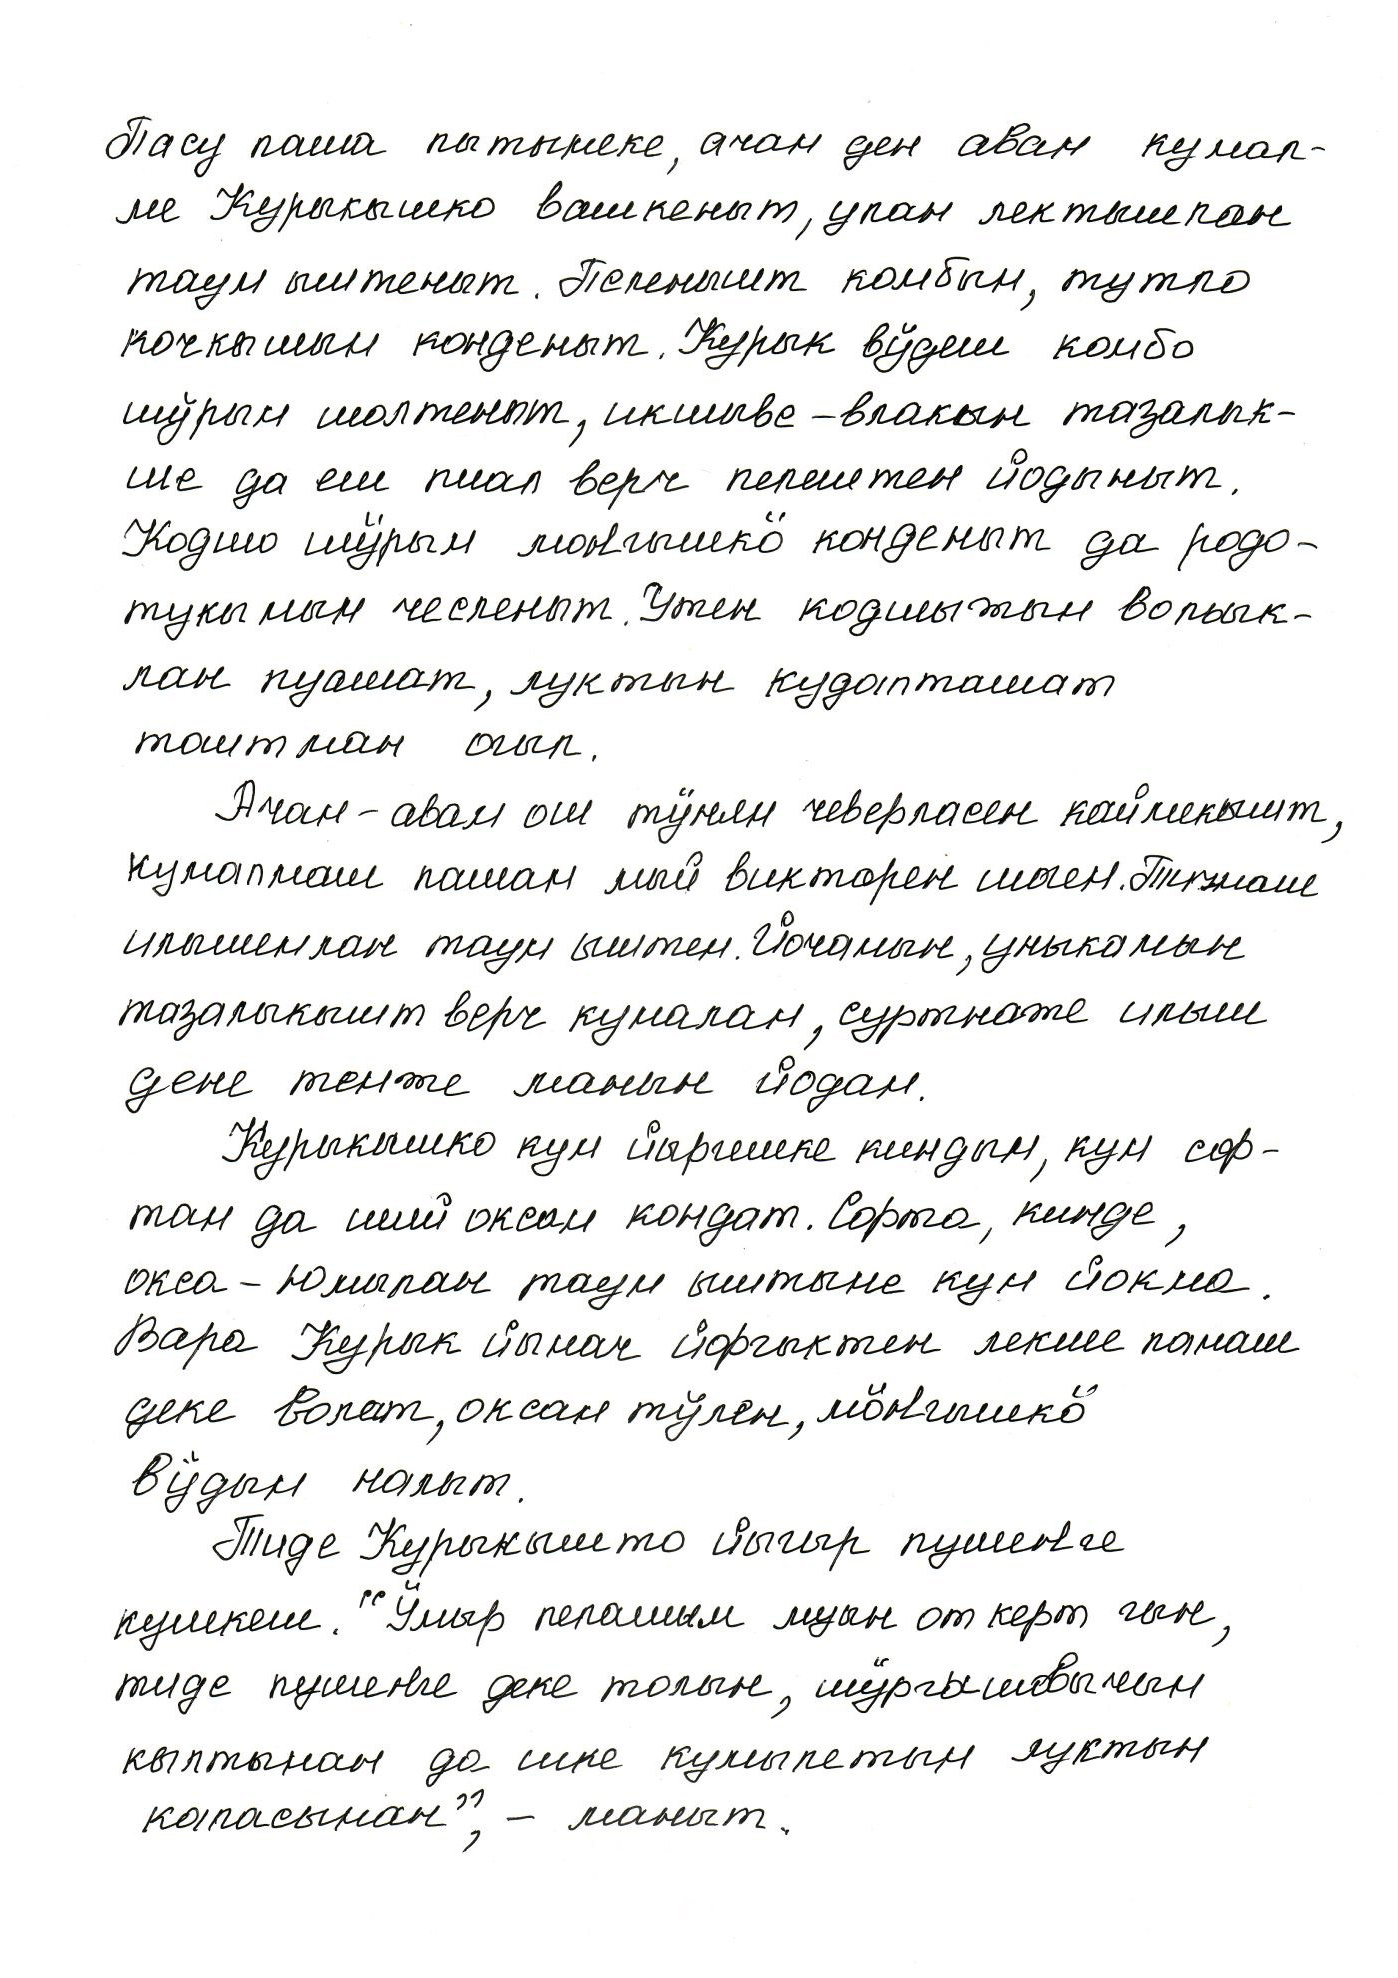 Пасу паша пытымеке, ачам ден авам кумал-
ме Курыкышко вашкеныт, улан лектышлан
таум ыштеныт. Пеленышт комбым, тутло
кочкышым конденыт. Курык вӱдеш комбо
шӱрым шолтеныт, икшыве-влакын тазалык-
ше да еш пиал верч пелештен йодыныт.
Кодшо шӱрым мӧҥгышкӧ конденыт да родо-
тукымым чесленыт. Утен кодшыжым вольык-
лан пуышат, луктын кудалташат
тоштман огыл.
Ачам-авам ош тӱням чеверласен каймекышт,
кумалмаш пашам мый викторен шоген. Тыгаш
илышемлан таум ыштем. Йочамын, уныкамын
тазалыкышт верч кумалам, суртнаже илыш
дене темже манын йодам.
Курыкышко кум йыргешке киндым, кум сор-
там да ший оксам кондат. Сорта, кинде,
окса – Юмылан таум ыштыме кум йокма.
Вара Курык йымач йоргыктен лекше памаш
деке волат, оксам тӱлен, мӧҥгышкӧ
вӱдым налыт.
Тиде Курыкышто йыгыр пушеҥге
кушкеш. "Ӱмыр пелашым муын от керт гын,
тиде пушеҥге деке толын, шӱргышовычым
кылтыман да шке кумылетым луктын
каласыман", – маныт.